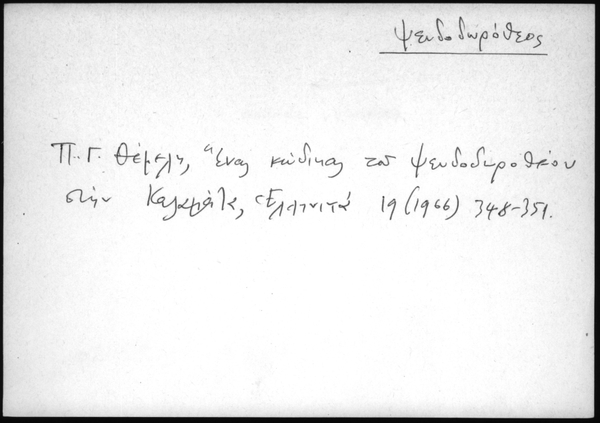 Ψευδοδωρόθεος
Π. Γ. Θέμελη, Ἕνας κώδικας τοῦ Ψευδοδωροθέου
στὴν Καλαμάτα, Ἑλληνικά 19 (1966) 348-351.